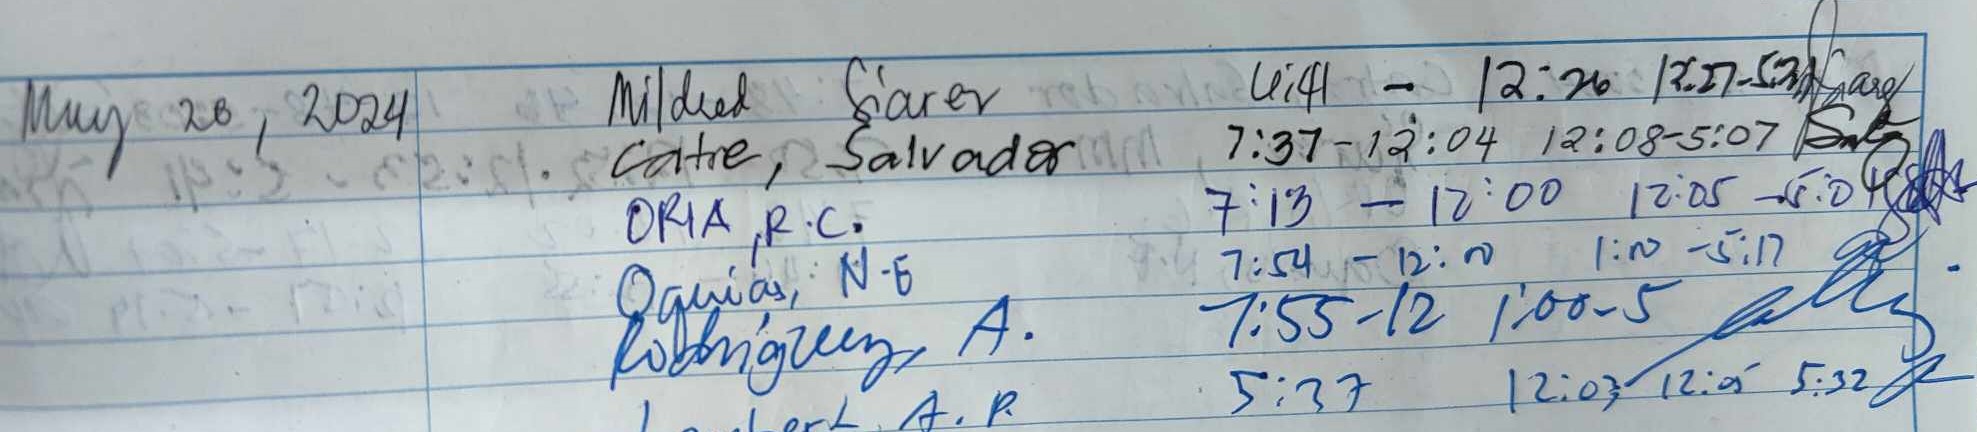 May 28, 2024 Mildred 12:26 12:27-5:31
Catre, Salvador 7:37-12:04 12:08-5:07
ORIA, R.C. 7:13 - 12:00 12:05 -5:04
Oquias, N.E 7:54 - 12:10 1:10 -5:17
Rodriguez, A. 7:55-12 1:00-5
A. P. 5:37 12:03 12:05 5:32